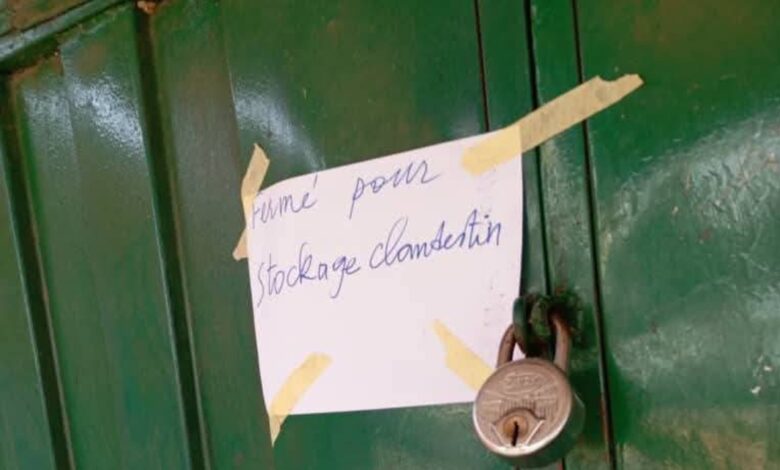 Fermé pour
Stockage clandestin